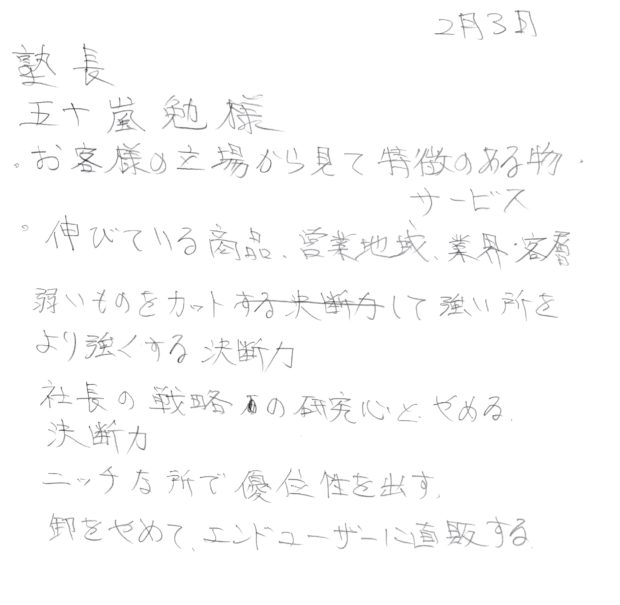 2月3日
塾長
五十嵐勉様
。お客様の立場から見て特徴のある物・
サービス
。伸びている商品、営業地域、業界・客層
弱いものをカットする決断力して強い所を
より強くする決断力
社長の戦略の研究心と、やめる
決断力
ニッチな所で優位性を出す。
卸をやめて、エンドユーザーに直販する